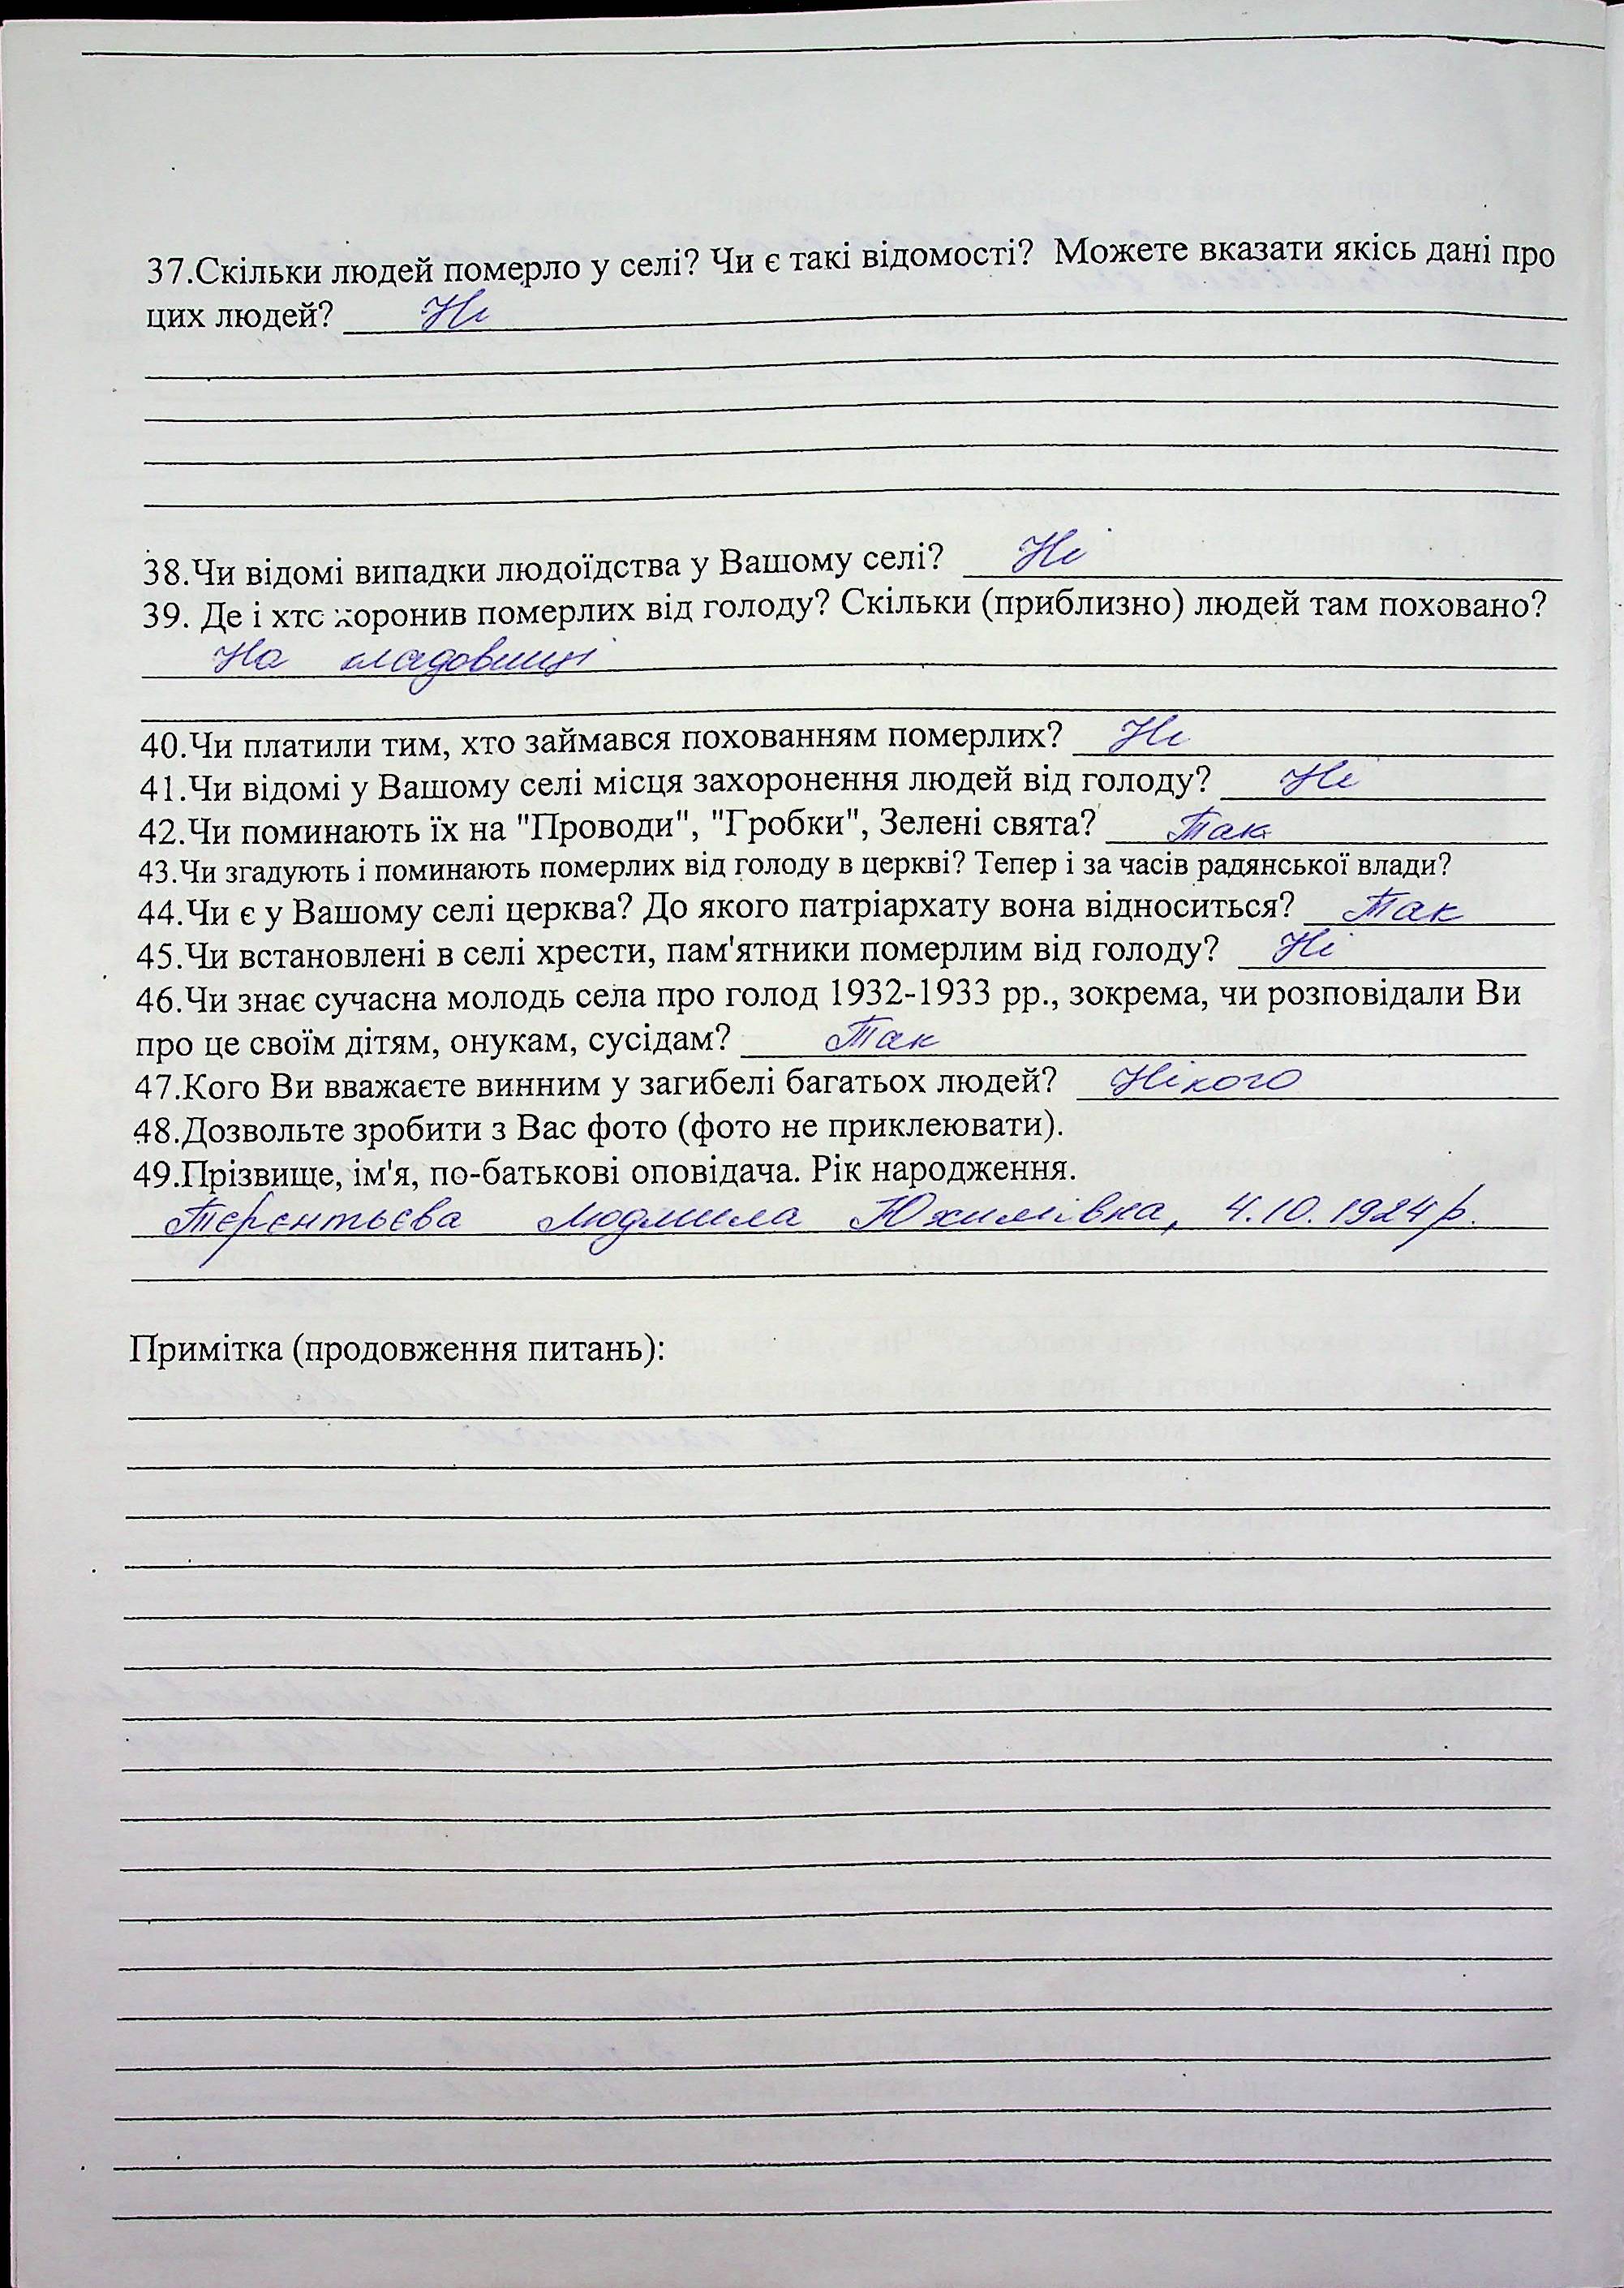 37.Скільки людей померло у селі? Чи є такі відомості? Можете вказати якісь дані про
цих людей? Ні
38.Чи відомі випадки людоїдства у Вашому селі? Ні
39. Де і хто хоронив померлих від голоду? Скільки (приблизно) людей там поховано?
На кладовищі
40.Чи платили тим, хто займався похованням померлих? Ні
41.Чи відомі у Вашому селі місця захоронення людей від голоду? Ні
42.Чи поминають їх на "Проводи", "Гробки", Зелені свята? Так
43.Чи згадують і поминають померлих від голоду в церкві? Тепер і за часів радянської влади?
44.Чи є у Вашому селі церква? До якого патріархату вона відноситься? Так
45.Чи встановлені в селі хрести, пам'ятники померлим від голоду? Ні
46.Чи знає сучасна молодь села про голод 1932-1933 рр., зокрема, чи розповідали Ви
про це своїм дітям, онукам, сусідам? Так
47.Кого Ви вважаєте винним у загибелі багатьох людей? Нікого
48.Дозвольте зробити з Вас фото (фото не приклеювати).
49.Прізвище, ім'я, по-батькові оповідача. Рік народження.
Терентьєва Людмила Юхимівна, 4.10.1924р.
Примітка (продовження питань):